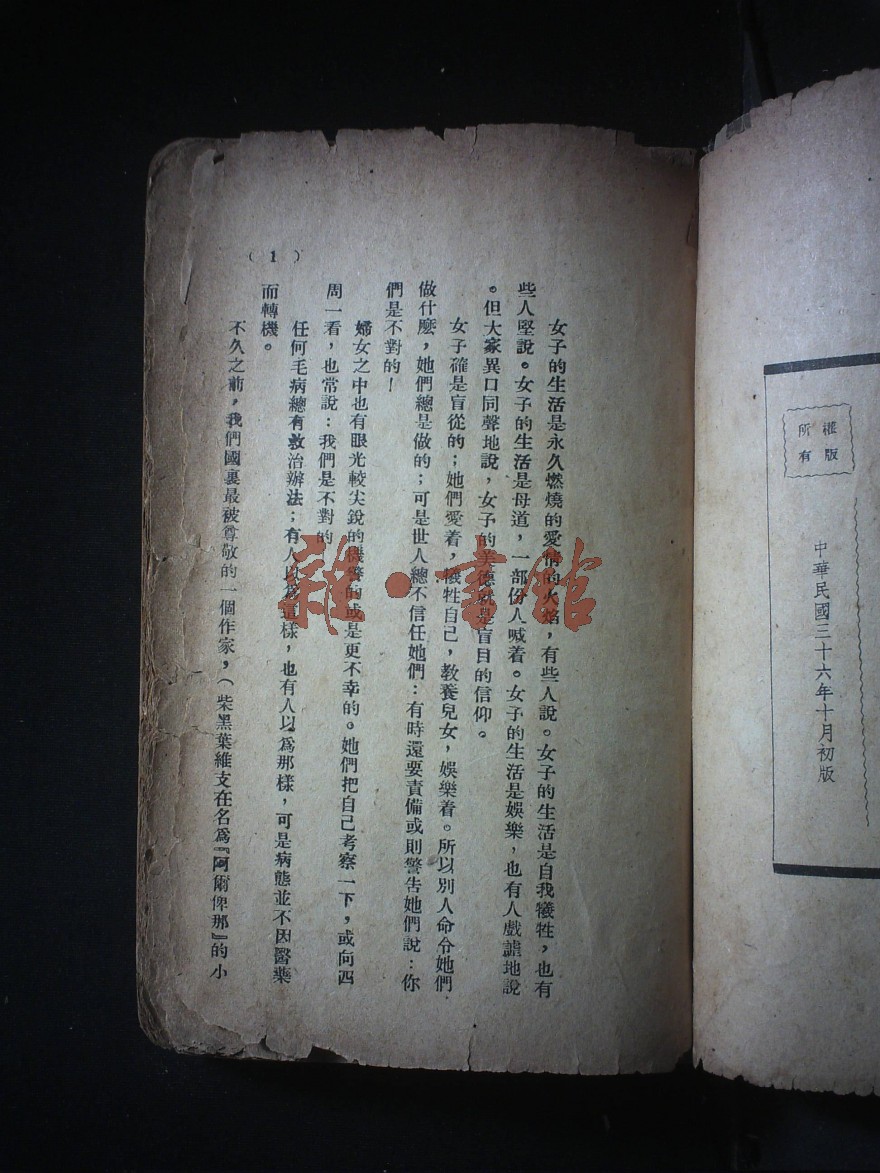 權版
所有
中華民國三十六年十月初版
女子的生活是永久燃燒的愛情的火焰，有些人說。女子的生活是自我犧牲，也有
些人堅說。女子的生活是母道，一部份人喊着。女子的生活是娛樂，也有人戲謔地說
。但大家異口同聲地說，女子的美德就是盲目的信仰。
女子確是盲從的；她們愛着，犧牲自己，教養兒女，娛樂着。所以別人命令她們
做什麽，她們總是做的；可是世人總不信任她們：有時還要責備或則警告她們說：你
們是不對的！
婦女之中也有眼光較尖銳的機警的或是更不幸的。她們把自己考察一下，或向四
周一看，也常說：我們是不對的
任何毛病總有救治辦法；有人以爲這樣，也有人以爲那樣，可是病態並不因醫藥
而轉機。
不久之前，我們國裏最被尊敬的一個作家，（柴黑葉維支在名爲『阿爾俾那』的小
（1）
雜·書館